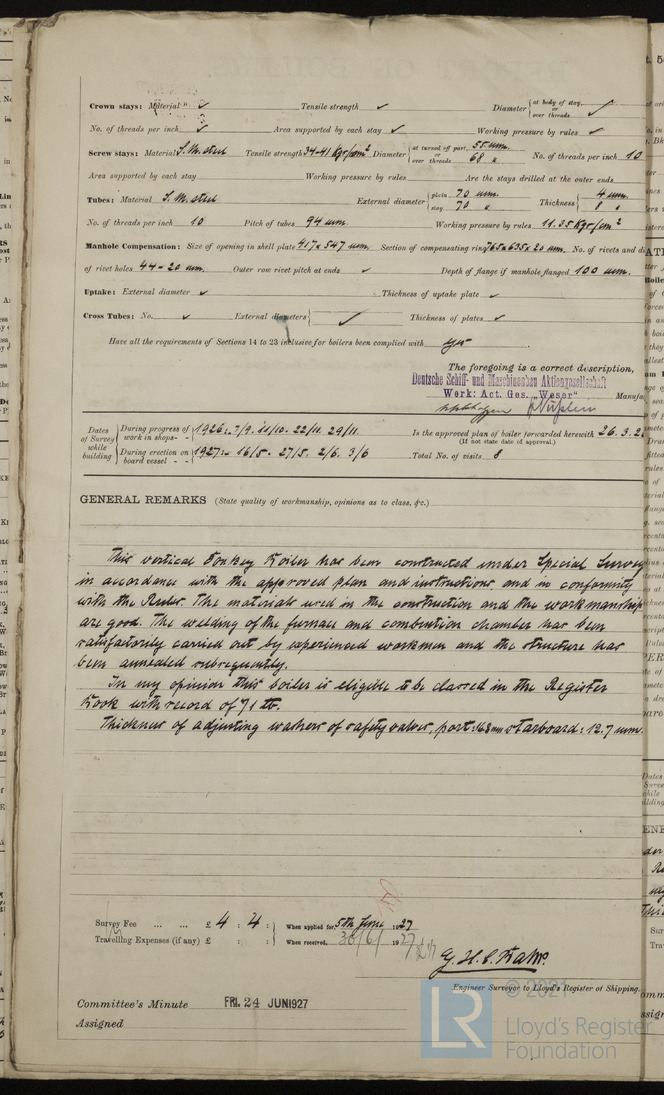 Crown stays: Material " ✓ Tensile strength ✓ Diameter { at body of stay, or over threads ✓
No. of threads per inch ✓ Area supported by each stay ✓ Working pressure by rules ✓
Screw stays: Material S. M. steel Tensile strength 34-41 Kgr/mm² Diameter { at turned off part, 55 mm. or over threads 68 " No. of threads per inch 10
Area supported by each stay Working pressure by rules Are the stays drilled at the outer ends
Tubes: Material S. M. steel External diameter { plain 70 mm. stay 70 " Thickness { 4 mm. 8 "
No. of threads per inch 10 Pitch of tubes 94 mm. Working pressure by rules 11.35 Kgr/cm²
Manhole Compensation: Size of opening in shell plate 417 x 547 mm. Section of compensating ring 765x635x20 mm. No. of rivets and di
of rivet holes 44 - 20 mm. Outer row rivet pitch at ends ✓ Depth of flange if manhole flanged 100 mm.
Uptake: External diameter ✓ Thickness of uptake plate ✓
Cross Tubes: No. ✓ External diameters { ✓ Thickness of plates ✓
Have all the requirements of Sections 14 to 23 inclusive for boilers been complied with yes
The foregoing is a correct description,
Deutsche Schiff- und Maschinenbau Aktiengesellschaft
Work: Act. Ges. „Weser" Manufa
Dates of Survey while building { During progress of work in shops - - 1926: 7/9. 11/10. 22/11. 29/11. Is the approved plan of boiler forwarded herewith 26.3.2
(If not state date of approval.)
During erection on board vessel - - 1927:- 16/5. 27/5. 2/6. 3/6 Total No. of visits 8
GENERAL REMARKS (State quality of workmanship, opinions as to class, &c.)
This vertical Donkey Boiler has been constructed under Special Survey
in accordance with the approved plan and instructions and in conformity
with the Rules. The materials used in the construction and the workmanship
are good. The welding of the furnace and combustion chamber has been
satisfactorily carried out by experienced workmen and the structure has
been annealed subsequently.
In my opinion this boiler is eligible to be classed in the Register
Book with record of 71 lb.
Thickness of adjusting washers of safety valves, port: 16.8 mm starboard: 12.7 mm.
Survey Fee ... ... £ 4 : 4 : When applied for, 5th June 1927
Travelling Expenses (if any) £ : : When received, 30/6/ 1927
Engineer Surveyor to Lloyd's Register of Shipping.
Committee's Minute FRI. 24 JUN 1927
Assigned
LR © 2021
Lloyd's Register
Foundation